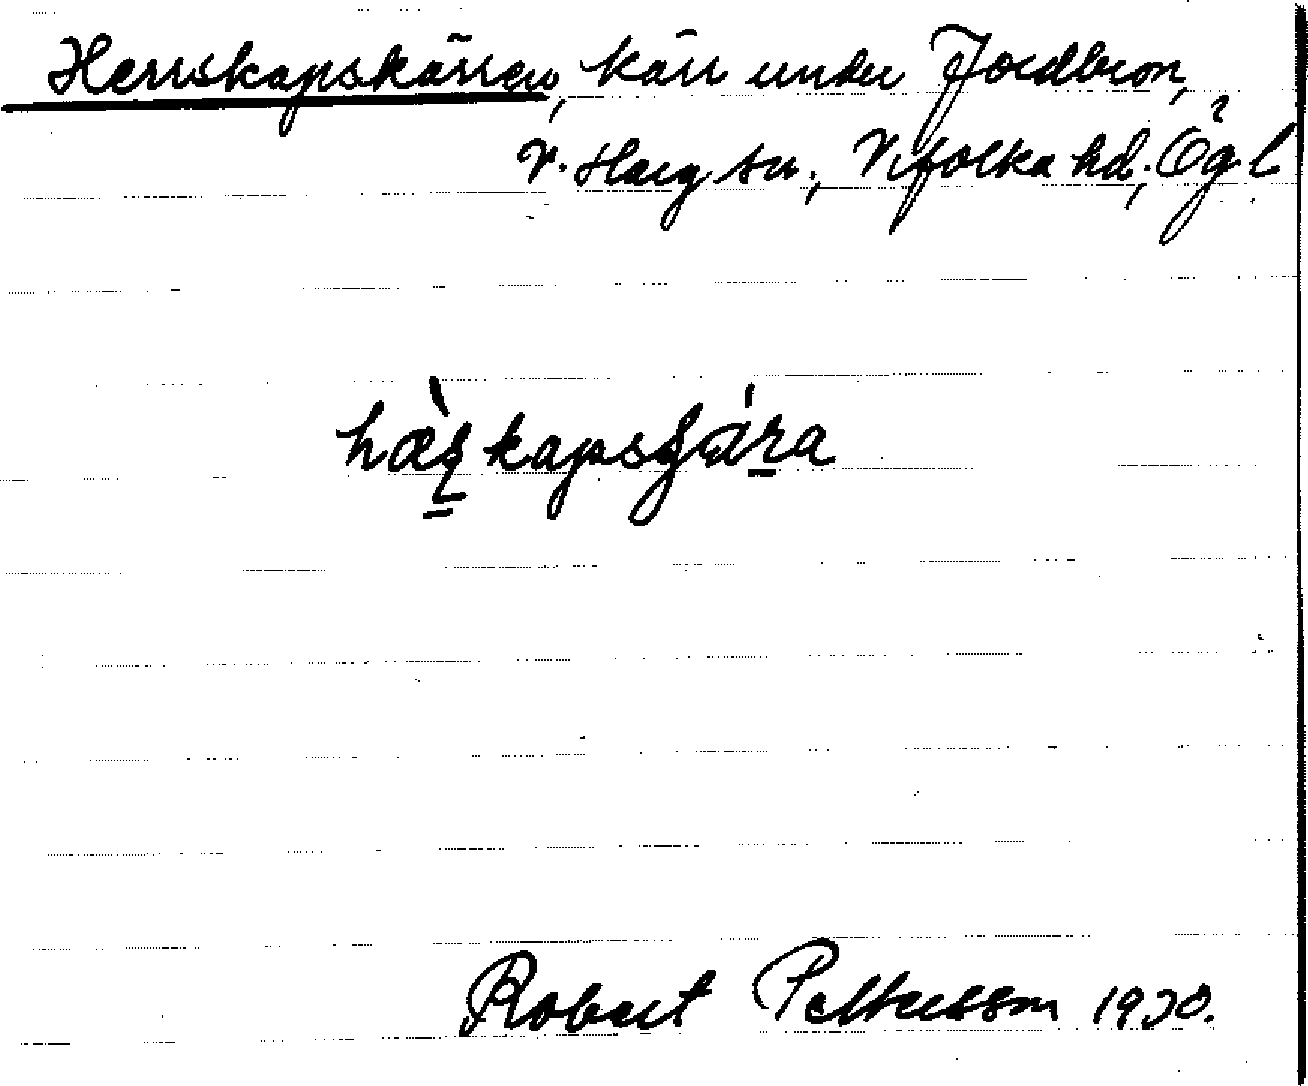 Herrskapskärren, kärr under Jordbron,
V. Harg sn., Vifolka hd., Ög. l
Robert Pettersson 1930.